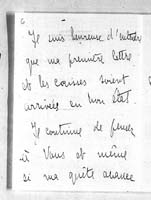 Je suis heureuse d'entendre
que ma première lettre
et les caisses soient
arrivées en bon état.
Je continue de penser
à Vous et même
si ma quête avance